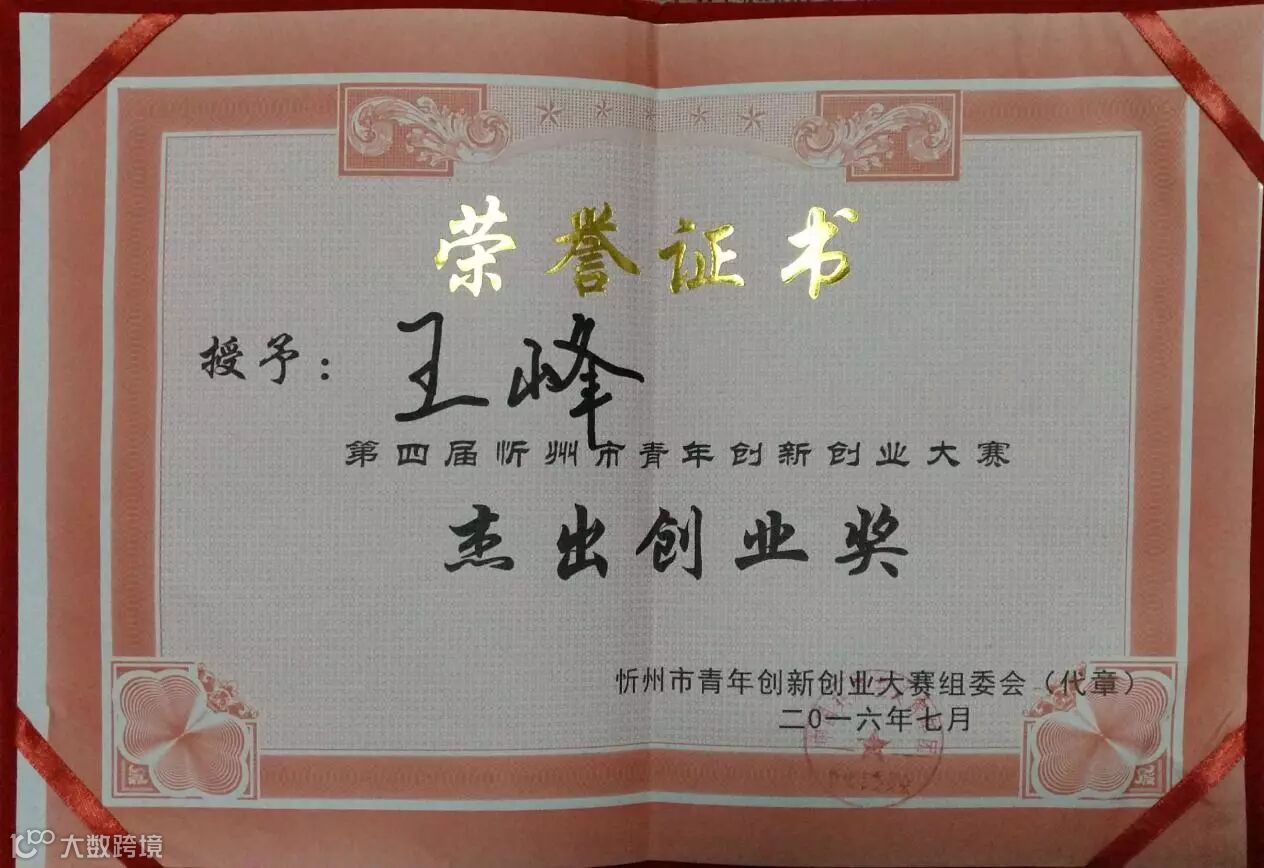 荣誉证书
授予：王峰
第四届忻州市青年创新创业大赛
杰出创业奖
忻州市青年创新创业大赛组委会（代章）
二0一六年七月
大数跨境